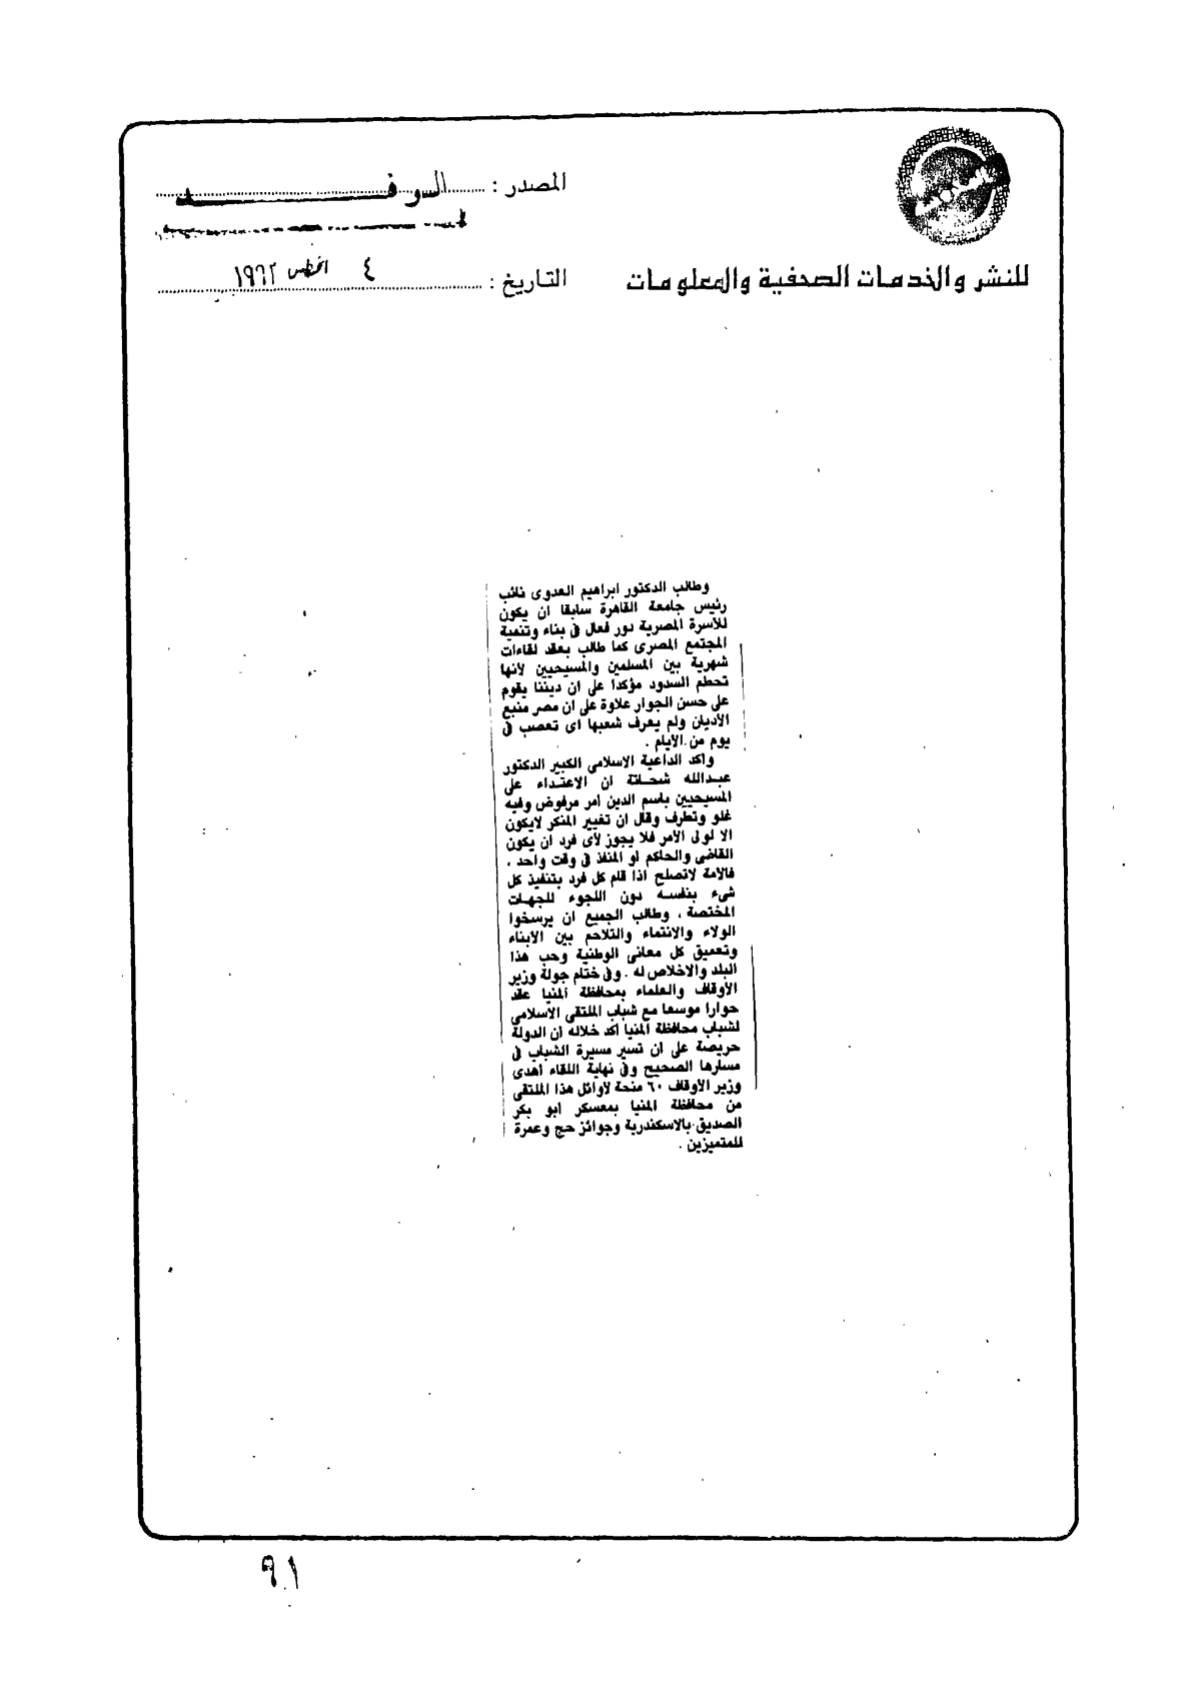 المصدر : الوفد
للنشر والخدمات الصحفية والمعلومات
التاريخ : ٤ اغسطس ١٩٩٢
وطالب الدكتور ابراهيم العدوى نائب
رئيس جامعة القاهرة سابقا ان يكون
للأسرة المصرية دور فعال فى بناء وتنمية
المجتمع المصرى كما طالب بعقد لقاءات
شهرية بين المسلمين والمسيحيين لأنها
تحطم السدود مؤكدا على ان ديننا يقوم
على حسن الجوار علاوة على ان مصر منبع
الأديان ولم يعرف شعبها اى تعصب فى
يوم من الأيام .
واكد الداعية الاسلامى الكبير الدكتور
عبدالله شحاتة ان الاعتداء على
المسيحيين باسم الدين أمر مرفوض وفيه
غلو وتطرف وقال ان تغيير المنكر لايكون
الا لولى الأمر فلا يجوز لأى فرد ان يكون
القاضى والحاكم او المنفذ فى وقت واحد ،
فالأمة لاتصلح اذا قام كل فرد بتنفيذ كل
شىء بنفسه دون اللجوء للجهات
المختصة ، وطالب الجميع ان يرسخوا
الولاء والانتماء والتلاحم بين الأبناء
وتعميق كل معانى الوطنية وحب هذا
البلد والاخلاص له . وفى ختام جولة وزير
الأوقاف والعلماء بمحافظة المنيا عقد
حوارا موسعا مع شباب الملتقى الاسلامى
لشباب محافظة المنيا أكد خلاله ان الدولة
حريصة على ان تسير مسيرة الشباب فى
مسارها الصحيح وفى نهاية اللقاء أهدى
وزير الأوقاف ٦٠ منحة لأوائل هذا الملتقى
من محافظة المنيا بمعسكر ابو بكر
الصديق بالاسكندرية وجوائز حج وعمرة
للمتميزين .
٩١